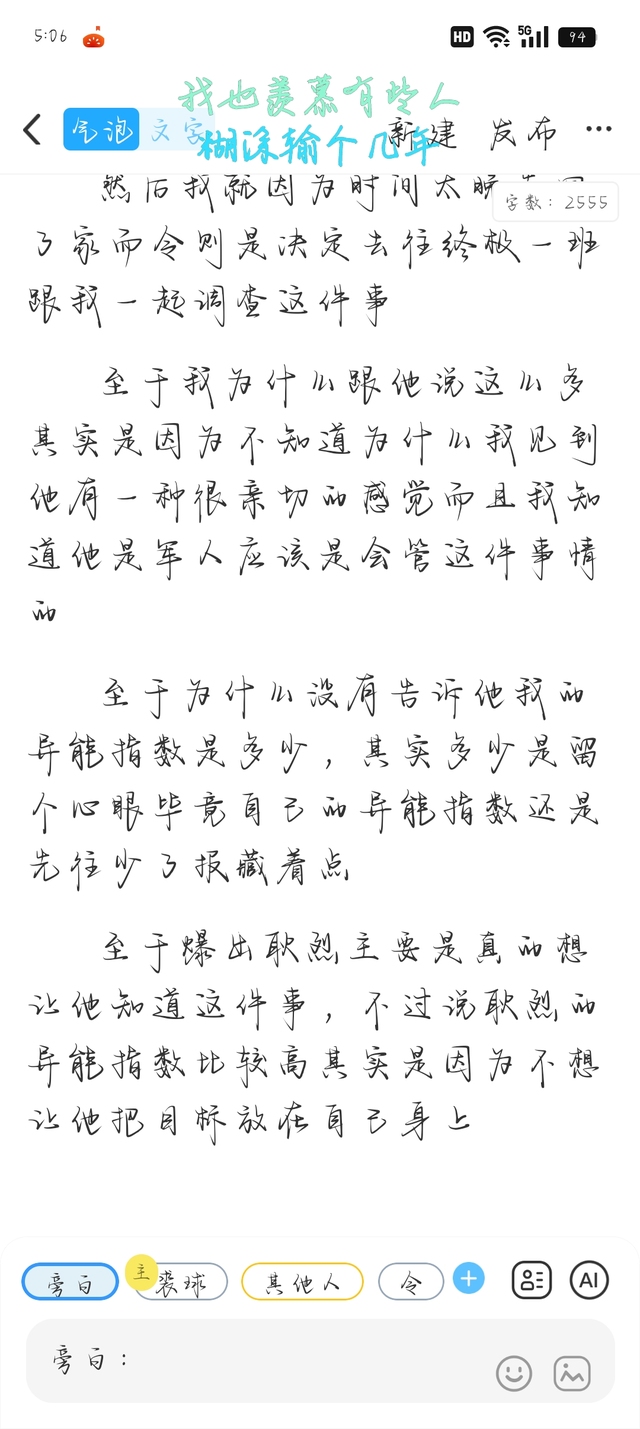 5:06
HD
5G
94
我也羡慕有些人
糊涂输个几年
气泡
文字
新建
发布
字数：2555
然后我就因为时间太晚
了家而令则是决定去往终极一班
跟我一起调查这件事
至于我为什么跟他说这么多
其实是因为不知道为什么我见到
他有一种很亲切的感觉而且我知
道他是军人应该是会管这件事情
的
至于为什么没有告诉他我的
异能指数是多少，其实多少是留
个心眼毕竟自己的异能指数还是
先往少了报藏着点
至于爆出耿烈主要是真的想
让他知道这件事，不过说耿烈的
异能指数比较高其实是因为不想
让他把目标放在自己身上
旁白
主
裘球
其他人
令
+
AI
旁白：